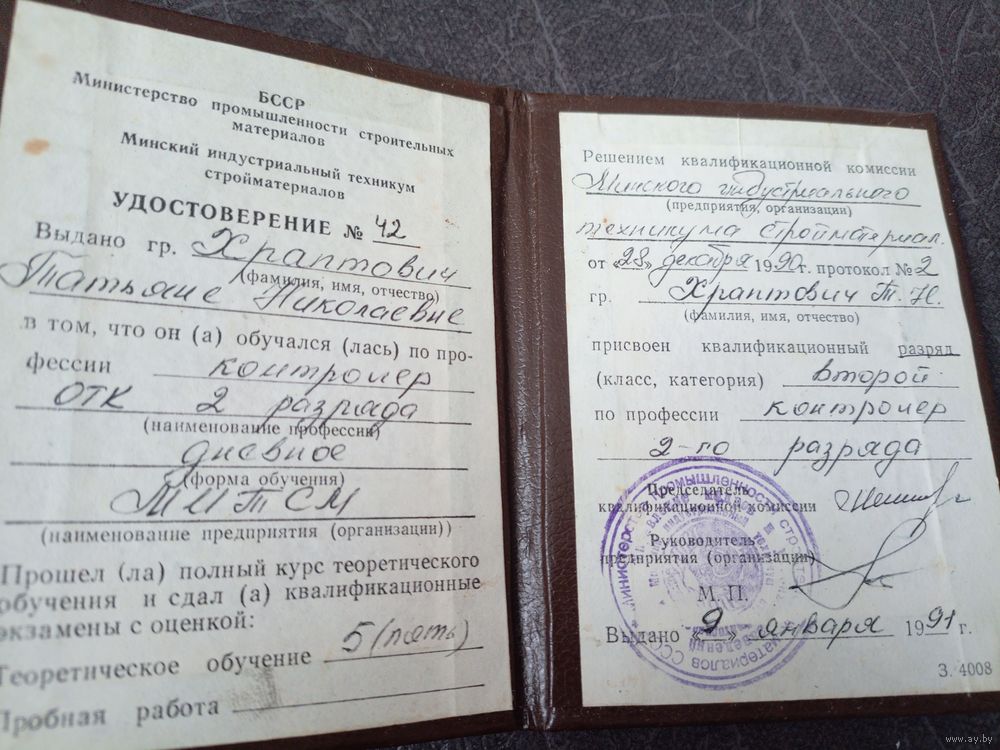 БССР
Министерство промышленности строительных
материалов
Минский индустриальный техникум
стройматериалов
УДОСТОВЕРЕНИЕ № 42
Выдано гр. Храптович
(фамилия, имя, отчество)
Татьяне Николаевне
в том, что он (а) обучался (лась) по про-
фессии контролер
ОТК 2 разряда
(наименование профессии)
дневное
(форма обучения)
МИТСМ
(наименование предприятия (организации))
Прошел (ла) полный курс теоретического
обучения и сдал (а) квалификационные
экзамены с оценкой:
Теоретическое обучение 5 (пять)
Пробная работа
Решением квалификационной комиссии
Минского индустриального
(предприятия, организации)
техникума стройматериал.
от «28» декабря 1990 г. протокол № 2
гр. Храптович Т. Н.
(фамилия, имя, отчество)
присвоен квалификационный разряд
(класс, категория) второй
по профессии контролер
2-го разряда
Председатель
квалификационной комиссии
Руководитель
предприятия (организации)
М. П.
Выдано «9» января 1991 г.
З. 4008
Министерство промышленности
материалов СССР
www.ay.by